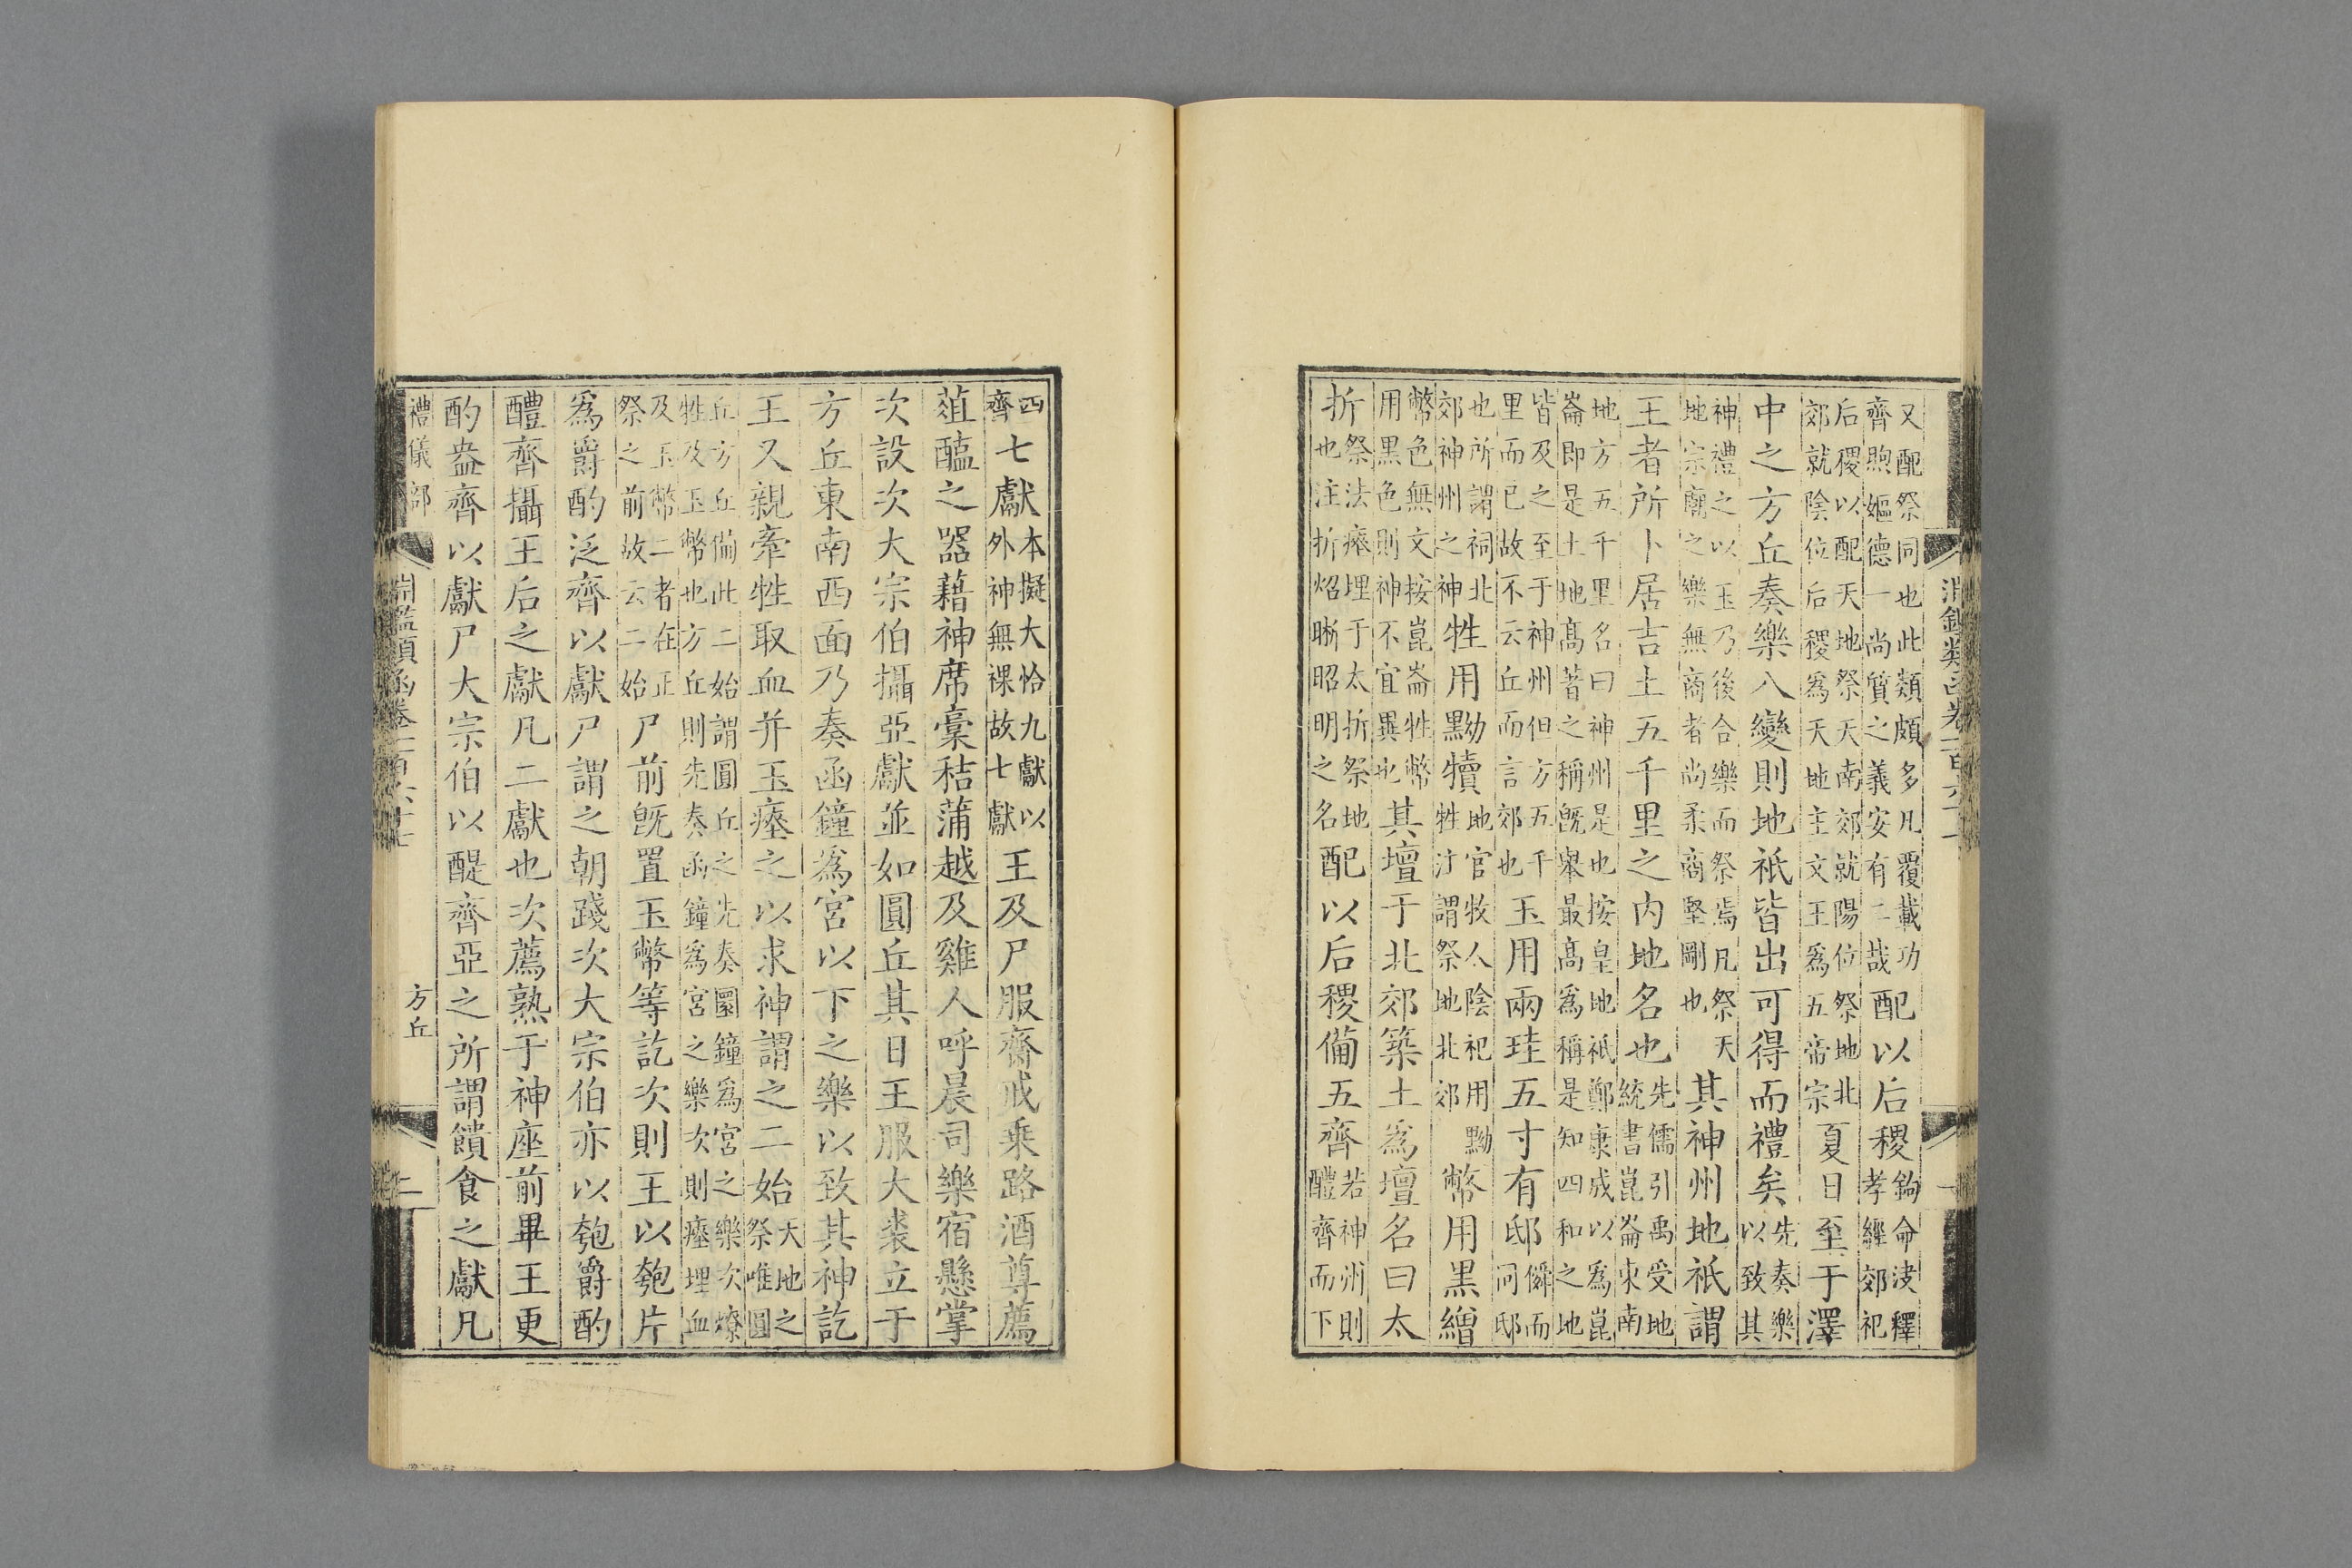 又配祭同也此類頗多凡覆載功齊煦嫗德一尚質之義安有二哉配以后稷鉤命決釋孝經郊祀
后稷以配天地祭天南郊就陽位祭地北郊就陰位后稷爲天地主文王爲五帝宗夏日至于澤
中之方丘奏樂八變則地祇皆出可得而禮矣先奏樂以致其
神禮之以玉乃後合樂而祭焉凡祭天地宗廟之樂無商者尚柔商堅剛也其神州地祇謂
王者所卜居吉土五千里之内地名也先儒引禹受地統書崑崙東南
地方五千里名曰神州是也按皇地祇鄭康成以爲崑崙即是土地高著之稱旣舉最高爲稱是知四和之地
皆及之至于神州但方五千里而已故不云丘而言郊也玉用兩珪五寸有邸僢而同邸
也所謂祠北郊神州之神牲用黝犢地官牧人陰祀用黝牲注謂祭地北郊幣用黑繒
幣色無文按崑崙牲幣用黑色則神不宜異也其壇于北郊築土爲壇名曰太
折祭法瘞埋于太折祭地也注折炤晣昭明之名配以后稷備五齊若神州則醴齊而下
四齊七獻本擬大祫九獻以外神無祼故七獻王及尸服齋戒乗路酒尊薦
菹醢之器藉神席稾秸蒲越及雞人呼晨司樂宿懸掌
次設次大宗伯攝亞獻並如圓丘其日王服大裘立于
方丘東南西面乃奏函鐘爲宮以下之樂以致其神訖
王又親牽牲取血并玉瘞之以求神謂之二始天地之祭唯圓
丘方丘備此二始謂圓丘之先奏圜鐘爲宮之樂次燎牲及玉幣也方丘則先奏函鐘爲宮之樂次則瘞埋血
及玉幣二者在正祭之前故云二始尸前旣置玉幣等訖次則王以匏片
爲爵酌泛齊以獻尸謂之朝踐次大宗伯亦以匏爵酌
醴齊攝王后之獻凡二獻也次薦熟于神座前畢王更
酌盎齊以獻尸大宗伯以醍齊亞之所謂饋食之獻凡
禮儀部 淵鑑類函卷一百 方丘 二